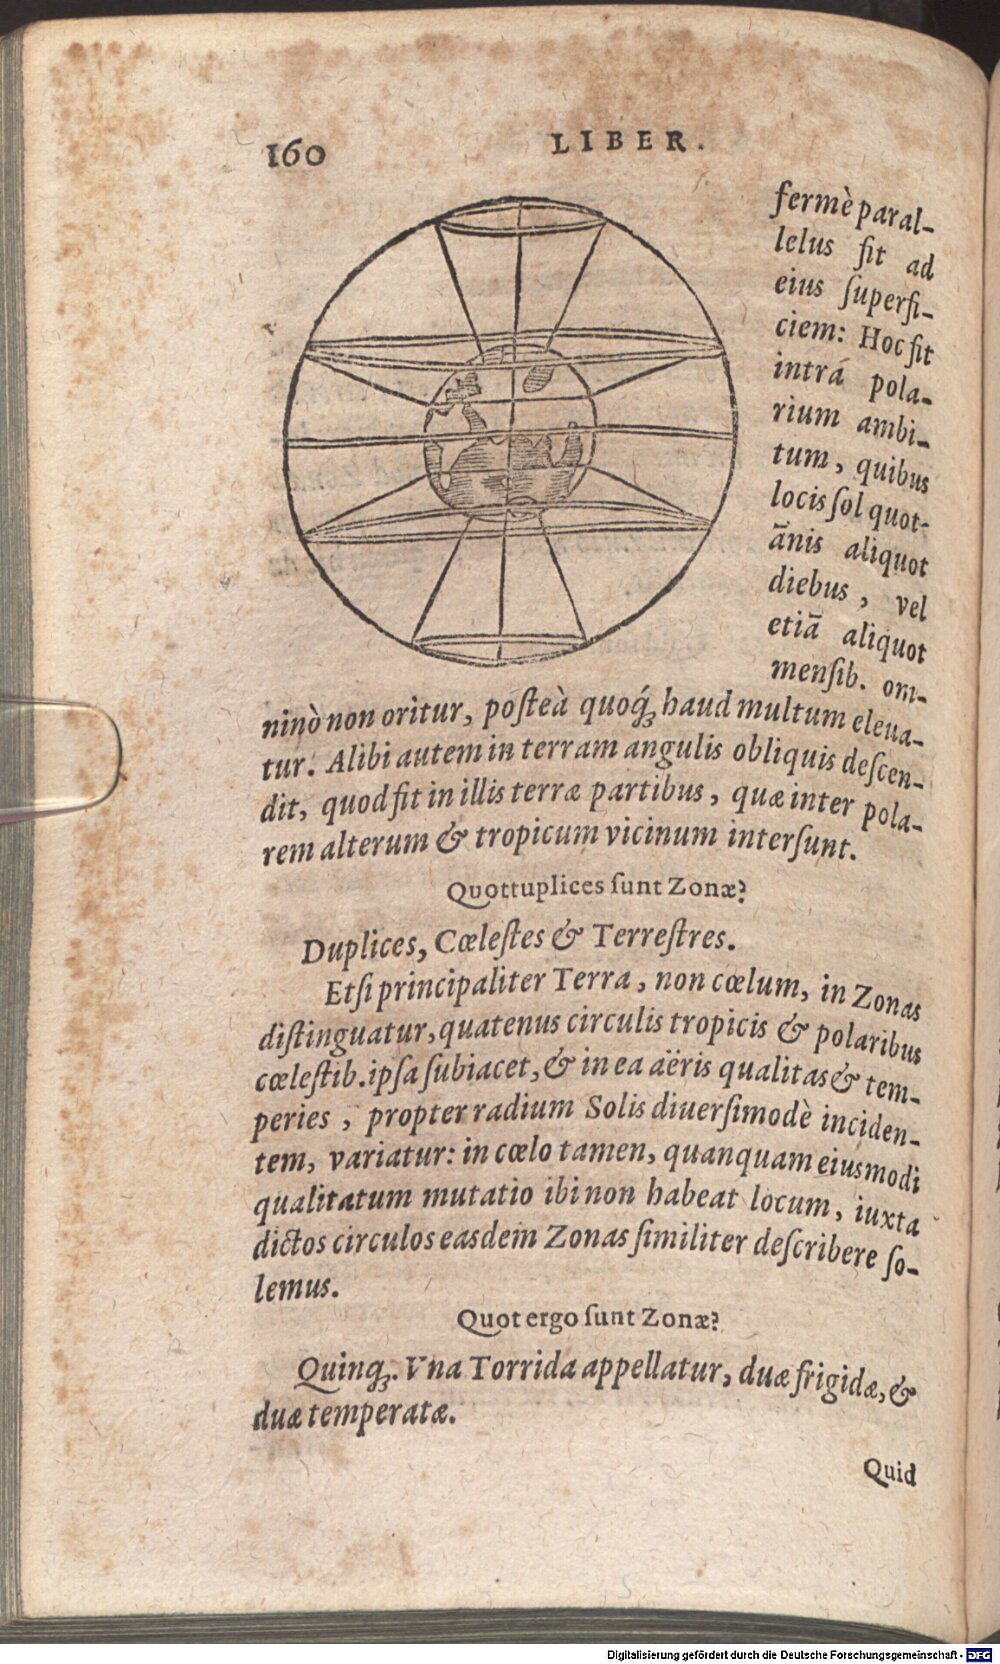 160 LIBER.
fermè paral-
lelus fit ad
eius ſuperfi-
ciem: Hoc fit
intrá pola-
rium ambi-
tum, quibus
locis ſol quot-
ānis aliquot
diebus, vel
etiā aliquot
menſib. om-
ninò non oritur, poſteà quoq́; haud multum eleua-
tur. Alibi autem in terram angulis obliquis deſcen-
dit, quod fit in illis terræ partibus, quæ inter pola-
rem alterum & tropicum vicinum interſunt.
Quottuplices ſunt Zonæ?
Duplices, Cœleſtes & Terreſtres.
Etſi principaliter Terra, non cœlum, in Zonas
diſtinguatur, quatenus circulis tropicis & polaribus
cœleſtib. ipſa ſubiacet, & in ea aëris qualitas & tem-
peries, propter radium Solis diuerſimodè inciden-
tem, variatur: in cœlo tamen, quanquam eiusmodi
qualitatum mutatio ibi non habeat locum, iuxta
dictos circulos easdem Zonas ſimiliter deſcribere ſo-
lemus.
Quot ergo ſunt Zonæ?
Quinq;. Vna Torrida appellatur, duæ frigidæ, &
duæ temperatæ.
Quid
Digitalisierung gefördert durch die Deutsche Forschungsgemeinschaft - DFG